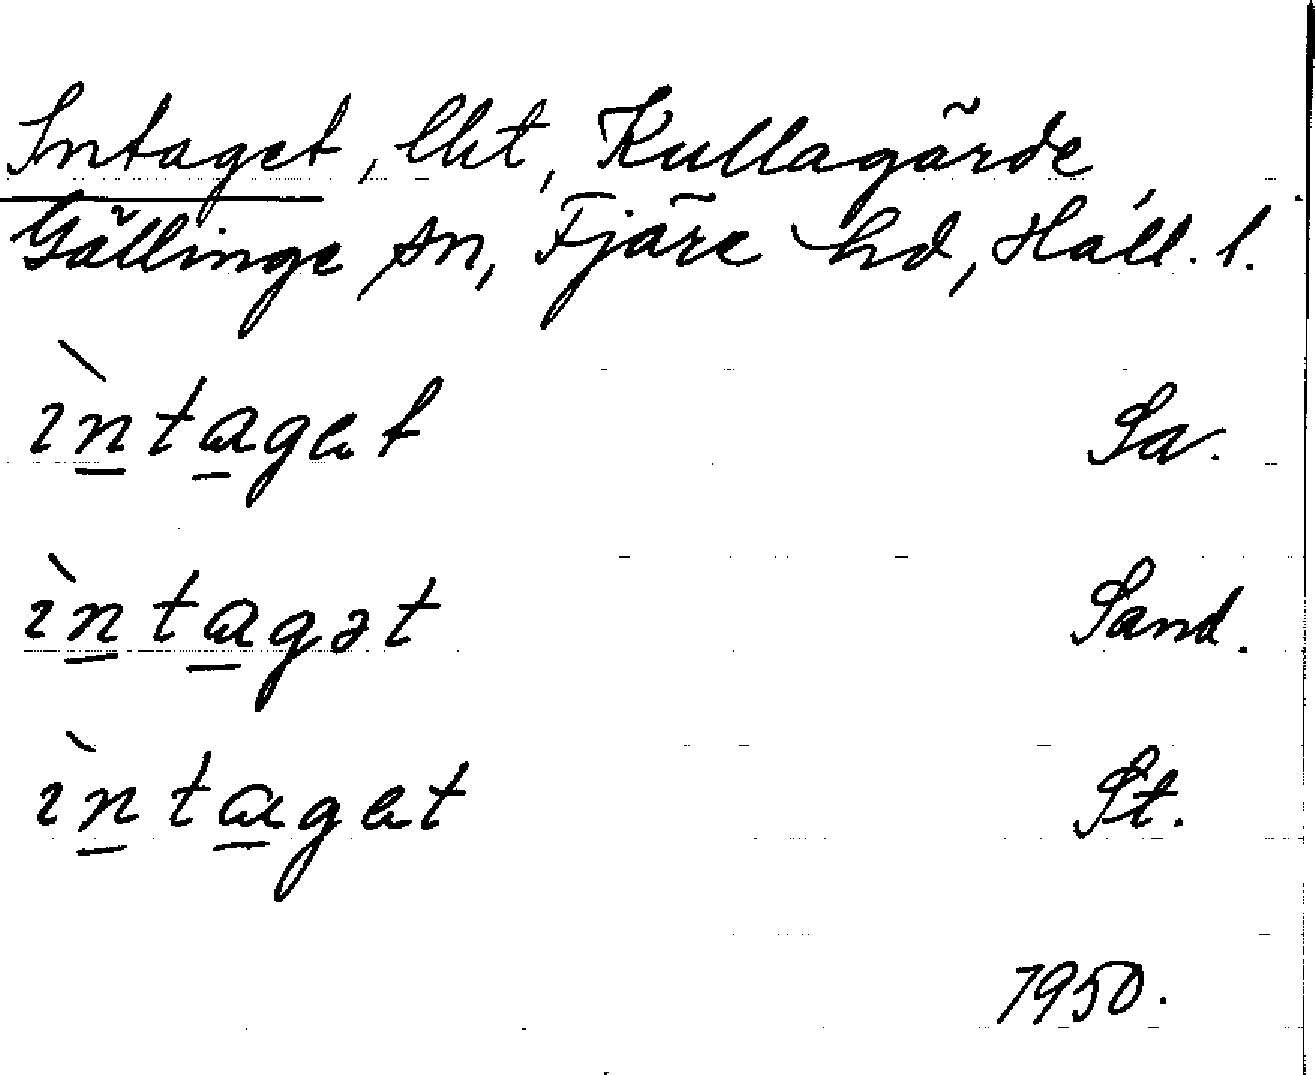 Intaget, lht, Kullagärde
Gällinge sn, Fjäre hd, Hall. l.
ìntaget Sa.
ìntagət Sand.
ìntaget St.
1950.